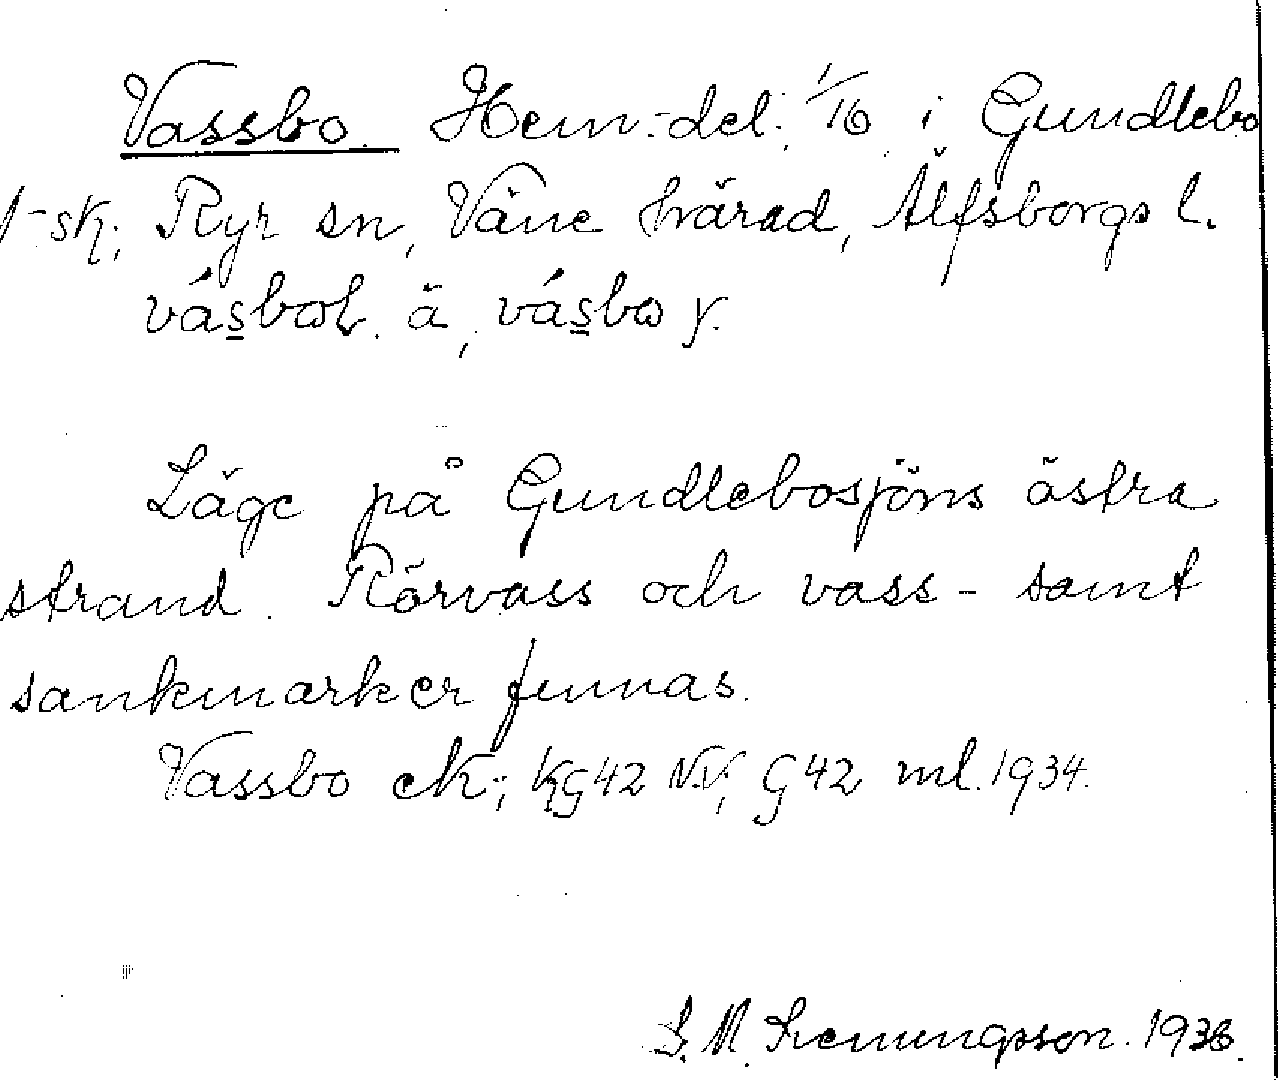 Vassbo. Hem.-del. 1/16 i Gundlebo
1-sk., Ryr sn, Väne härad, Älfsborgs l.
vásbωL. ä, vásbω y.
Läge på Gundlebosjöns östra
strand. Rörvass och vass- samt
sankmarker finnas.
Vassbo ek; KG42 N.V, G42 ml. 1934.
S. M. 1936.